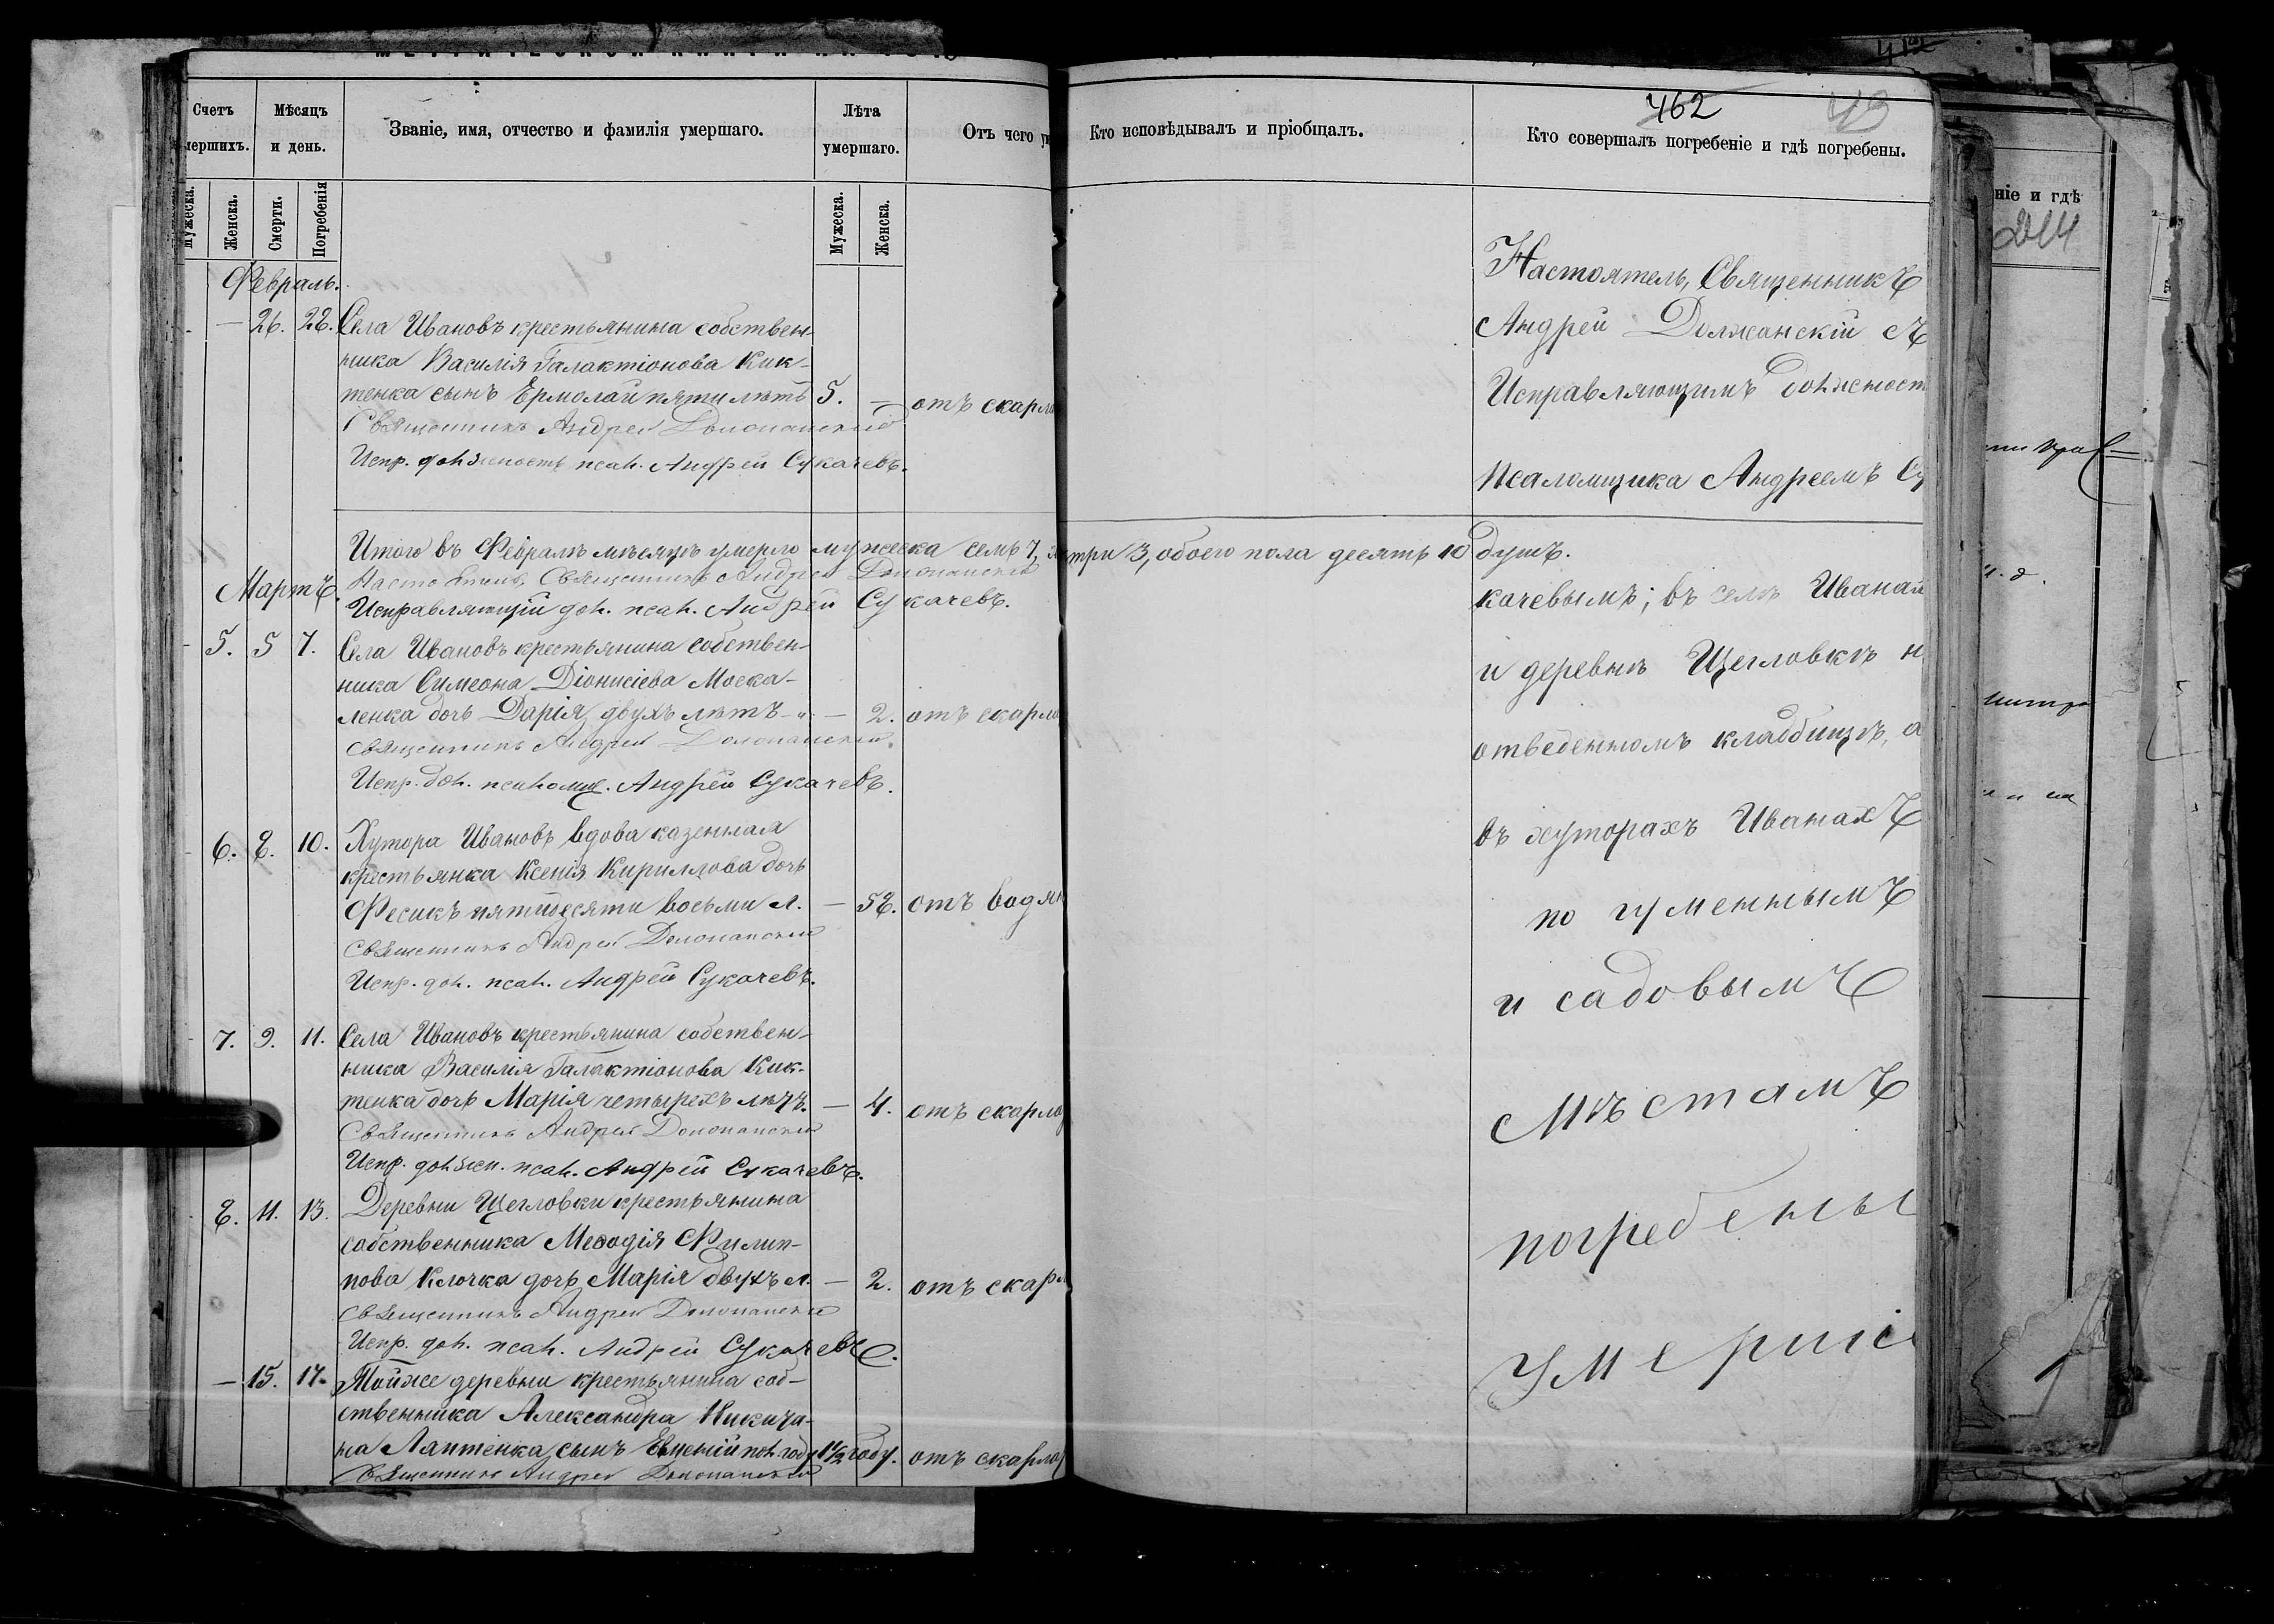 Счетъ
мершихъ.
Мѣсяцъ
и день.
Званіе, имя, отчество и фамилія умершаго.
Лѣта
умершаго.
Отъ чего
мужеска.
Женска.
Смерти.
Погребенія
Мужеска.
Женска.
Февраль.
— 26. 28. Села Ивановъ крестьянина собствен-
ника Василія Галактіонова Кик-
тенка сынъ Ермолай пяти лѣтъ 5. — отъ скарла
Священникъ Андрей Должанскій
Испр. должность псал. Андрей Сукачевъ.
Итого въ Февралѣ мѣсяцѣ умерло мужеска семь 7, три 3, обоего пола десять 10 душъ.
Настоятель, Священникъ Андрей Должанскій
Мартъ.
Исправляющій дол. псал. Андрей Сукачевъ.
5. 5 7. Села Ивановъ крестьянина собствен-
ника Симеона Діонисіева Моска-
ленка дочь Дарія, двухъ лѣтъ — 2. отъ скарла
Священникъ Андрей Должанскій.
Испр. дол. псаломщ. Андрей Сукачевъ.
6. 8. 10. Хутора Ивановъ вдова казенная
крестьянка Ксенія Кириллова дочь
Фесикъ пятидесяти восьми л. — 58. отъ водян
Священникъ Андрей Должанскій
Испр. дол. псал. Андрей Сукачевъ.
7. 9. 11. Села Ивановъ крестьянина собствен-
ника Василія Галактіонова Кик-
тенка дочь Марія четырехъ лѣтъ. — 4. отъ скарла
Священникъ Андрей Должанскій
Испр. должн. псал. Андрей Сукачевъ.
8. 11. 13. Деревни Щегловки крестьянина
собственника Меѳодія Филип-
пова Клочка дочь Марія двухъ л. — 2. отъ скарл
Священникъ Андрей Должанскій
Испр. дол. псал. Андрей Сукачевъ.
— 15. 17. Тойже деревни крестьянина соб-
ственника Александра
на Лаптенка сынъ Евгеній пол. году 1½ году. отъ скарла
Священникъ Андрей Должанскій
Кто исповѣдывалъ и пріобщалъ.
462
43
Кто совершалъ погребеніе и гдѣ погребены.
Настоятель, Священникъ
Андрей Должанскій съ
Исправляющимъ должност
псаломщика Андреемъ Су
качевымъ; въ селѣ Иванах
и деревнѣ Щегловкѣ н
отведенномъ кладбищѣ, а
въ хуторахъ Иванахъ
по гуменнымъ
и садовымъ
мѣстамъ
погребены
умершіе
ніе и гдѣ